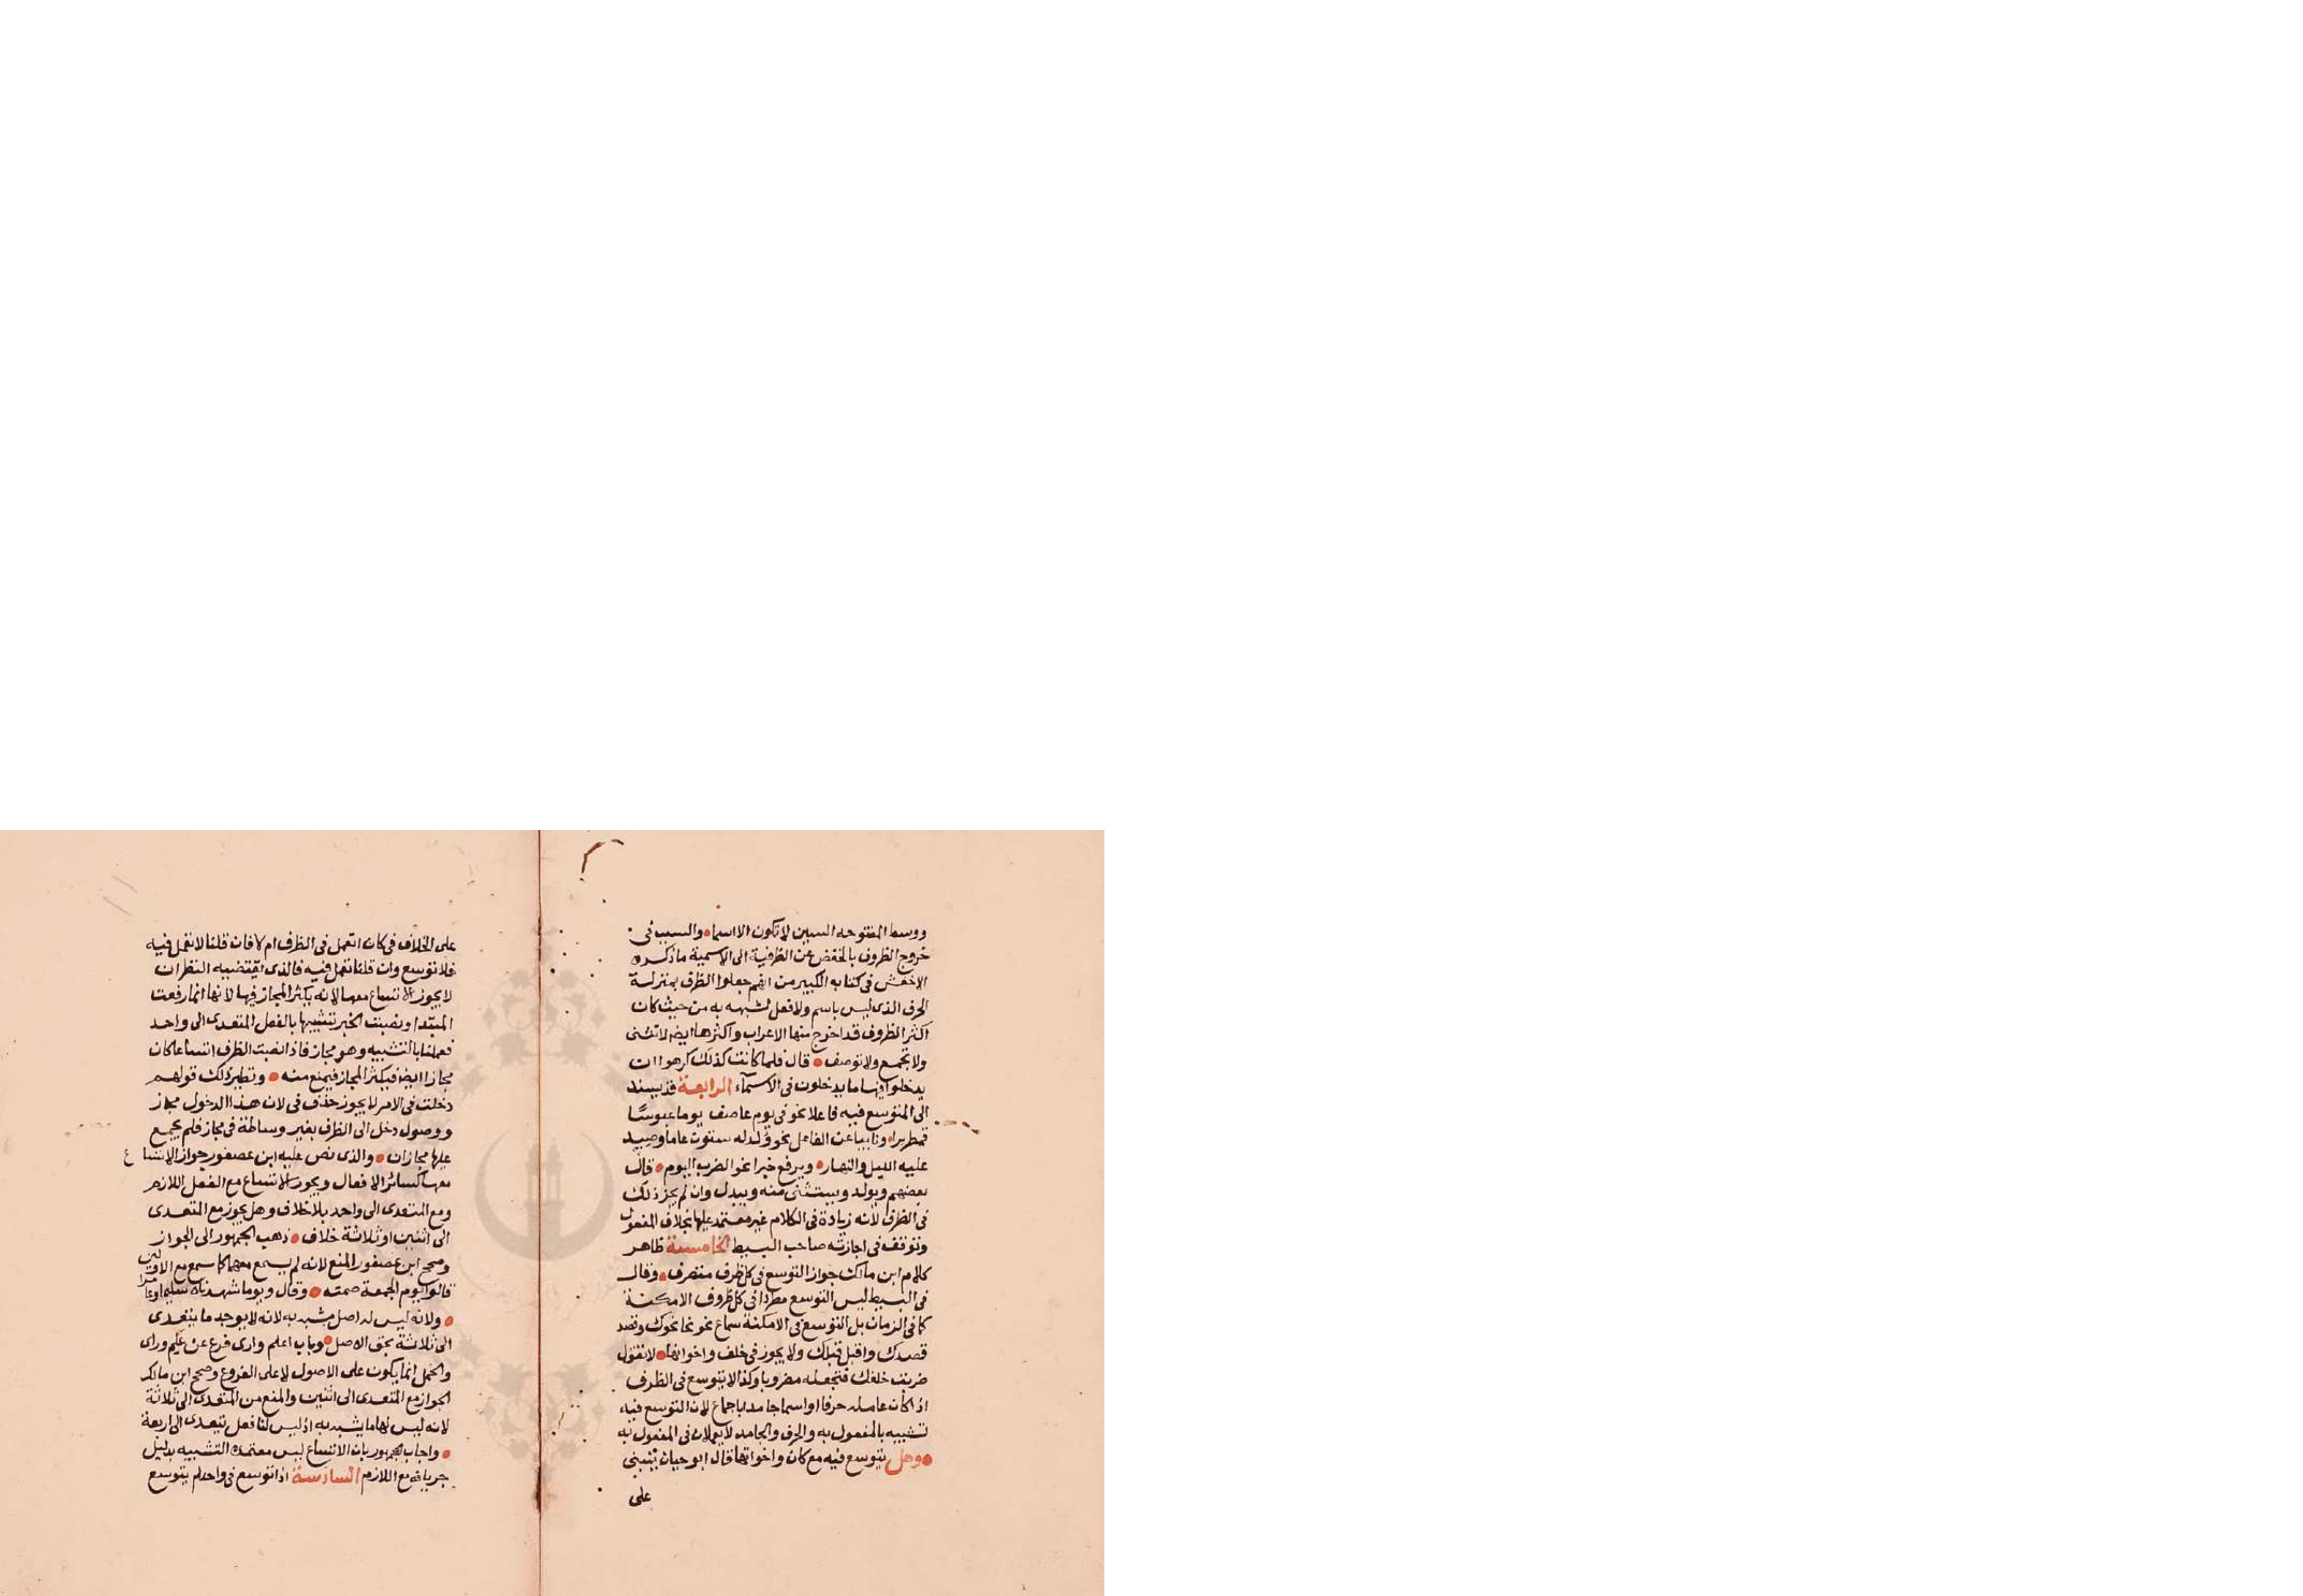 ووسط المفتوحه السين لا تكون الا اسما والسبب فى
خروج الظروف بالخفض عن الظرفية الى الاسمية ما ذكره
الاخفش فى كتابه الكبير من انهم جعلوا الظرف بمنزلة
الحرف الذى ليس باسم ولا فعل لشبهه به من حيث كان
اكثر الظروف قد اخرج منها الاعراب واكثرها ايضا لا تثنى
ولا تجمع ولا توصف قال فلما كانت كذلك كرهوا ان
يدخلوا فيها ما يدخلون فى الاسمآء الرابعة قد يسند
الى المتوسع فيه فاعلا نحو فى يوم عاصف يوما عبوسًا
قمطريرا ونايبا عن الفاعل نحو وُلد له ستون عاما وصِيد
عليه الليل والنهار ويرفع خبرا نحو الضرب اليوم قال
بعضهم ويولد ويستثنى منه ويبدل وان لم يجز ذلك
فى الظرف لانه زيادة فى الكلام غير معتمد عليها بخلاف المفعول
وتوقف فى اجازته صاحب البسيط الخامسة ظاهر
كلام ابن مالك جواز التوسع فى كل ظرف متصرف وقال
فى البسيط ليس التوسع مطردا فى كل ظروف الامكنة
كما فى الزمان بل التوسع فى الامكنة سماع نحو نحا نحوك وقصد
قصدك واقبل قبلك ولا يجوز فى خلف واخواتها لا تقول
ضربت خلفك فتجعله مضروبا وكذا لا يتوسع فى الظرف
اذا كان عامله حرفا او اسما جامدا باجماع لان التوسع فيه
تشبيه بالمفعول به والحرف والجامد لا يعملان فى المفعول به
وهل يتوسع فيه مع كان واخواتها قال ابو حيان ينبنى
على
على الخلاف فى كان اتعمل فى الظرف ام لا فان قلنا لا تعمل فيه
فلا توسع وان قلنا تعمل فيه فالذى يقتضيه النظر ان
لا يجوز الاتساع معها لانه يكثر المجاز فيها لانها انما رفعت
المبتدا ونصبت الخبر تشبيها بالفعل المتعدى الى واحد
فعملها بالتشبيه وهو مجاز فاذا نصبت الظرف اتساعا كان
مجازا ايضا فيكثر المجاز فيمنع منه ونظير ذلك قولهم
دخلت فى الامر لا يجوز حذف فى لان هذا الدخول مجاز
ووصول دخل الى الظرف بغير وساطة فى مجاز فلم يجمع
عليها مجازان والذى نص عليه ابن عصفور جواز الاتساع
معها كسائر الافعال ويجوز الاتساع مع الفعل اللازم
ومع المتعدى الى واحد بلا خلاف وهل يجوز مع المتعدى
الى اثنين او ثلاثة خلاف ذهب الجمهور الى الجواز
وصحح ابن عصفور المنع لانه لم يسمع معهما كما سمع مع الاولين
قالوا اليوم الجمعة صمته وقال ويوما شهدناه سليما وعامرا
ولانه ليس له اصل يشبه به لانه لا يوجد ما يتعدى
الى ثلاثة بحق الاصل وباب اعلم وارى فرع عن علم وراى
والحمل انما يكون على الاصول لا على الفروع وصحح ابن مالك
الجواز مع المتعدى الى اثنين والمنع من المتعدى الى ثلاثة
لانه ليس لها ما يشبه به اذ ليس لنا فعل يتعدى الى اربعة
واجاب الجمهور بان الاتساع ليس معتمده التشبيه بدليل
جريانه مع اللازم السادسة اذا توسع فى واحد لم يتوسع